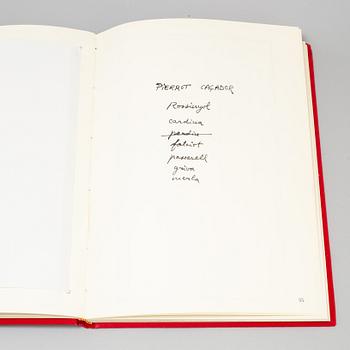 PIERROT CAÇADOR
Rossinyol
cardina
perdiu
falziot
passerell
griva
merla